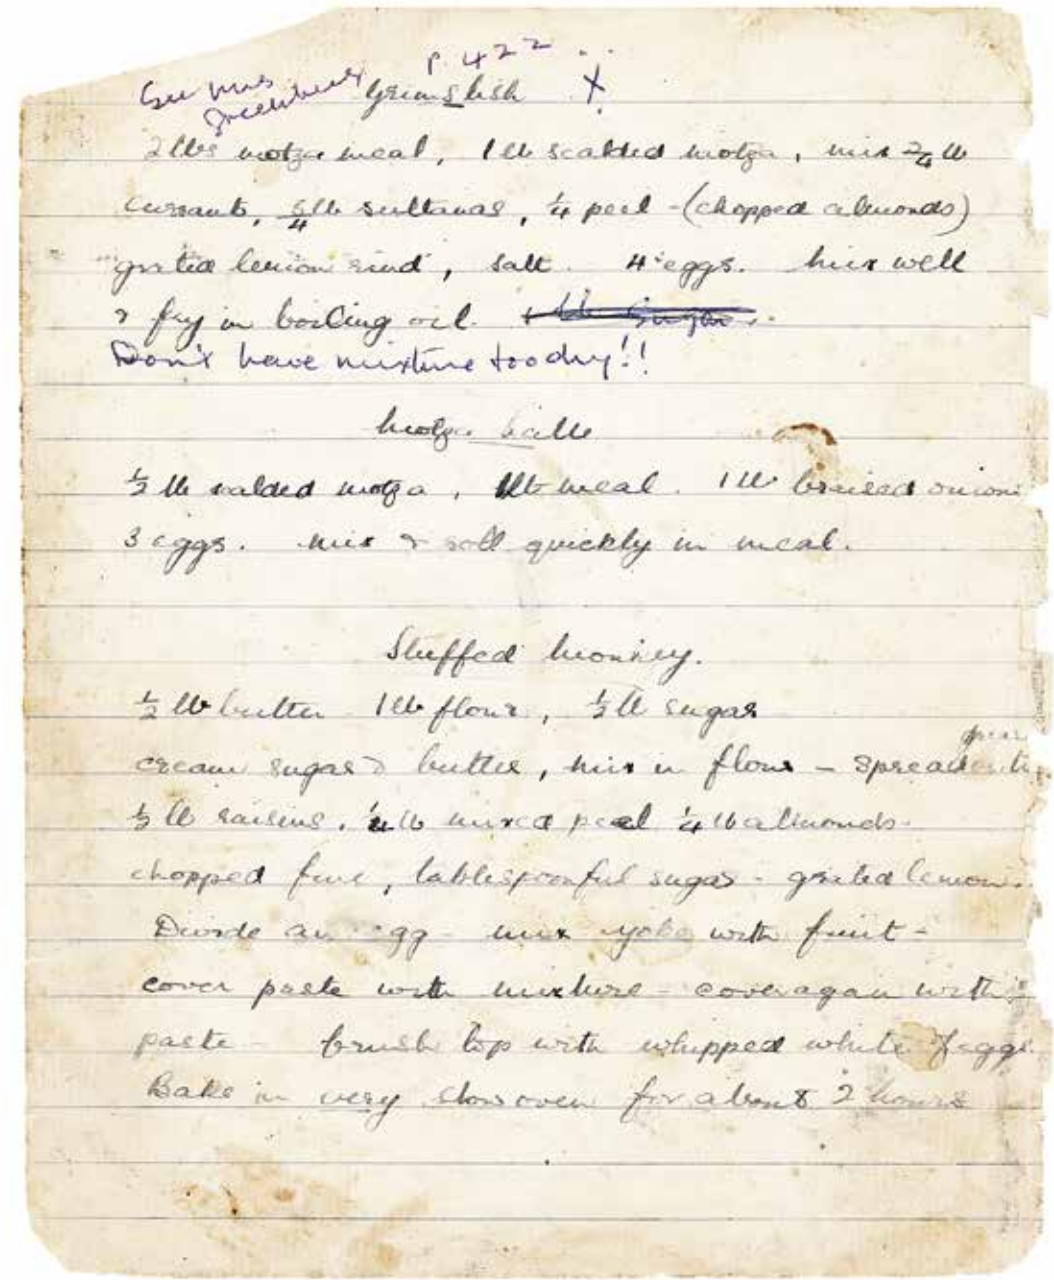 P. 422 ...
See Mrs
Grimslish X
2 lbs motza meal, 1 lb scalded motza, mix 3/4 lb
currants, 3/4 lb sultanas, 1/4 peel - (chopped almonds)
grated lemon rind, salt. 4 eggs. Mix well
& fry in boiling oil.
Don't have mixture too dry!!
Motza balls
1/2 lb scalded motza, 1lb meal. 1 lb braised onions
3 eggs. Mix & roll quickly in meal.
Stuffed Monkey.
1/2 lb butter 1 lb flour, 1/2 lb sugar
cream sugar & butter, mix in flour - spread
1/2 lb raisins, 1/4 lb mixed peel 1/4 lb almonds.
chopped fine, tablespoonful sugar - grated lemon.
Divide an egg - mix yoke with fruit -
cover paste with mixture - cover again with
paste - brush top with whipped white of eggs.
Bake in very slow oven for about 2 hours